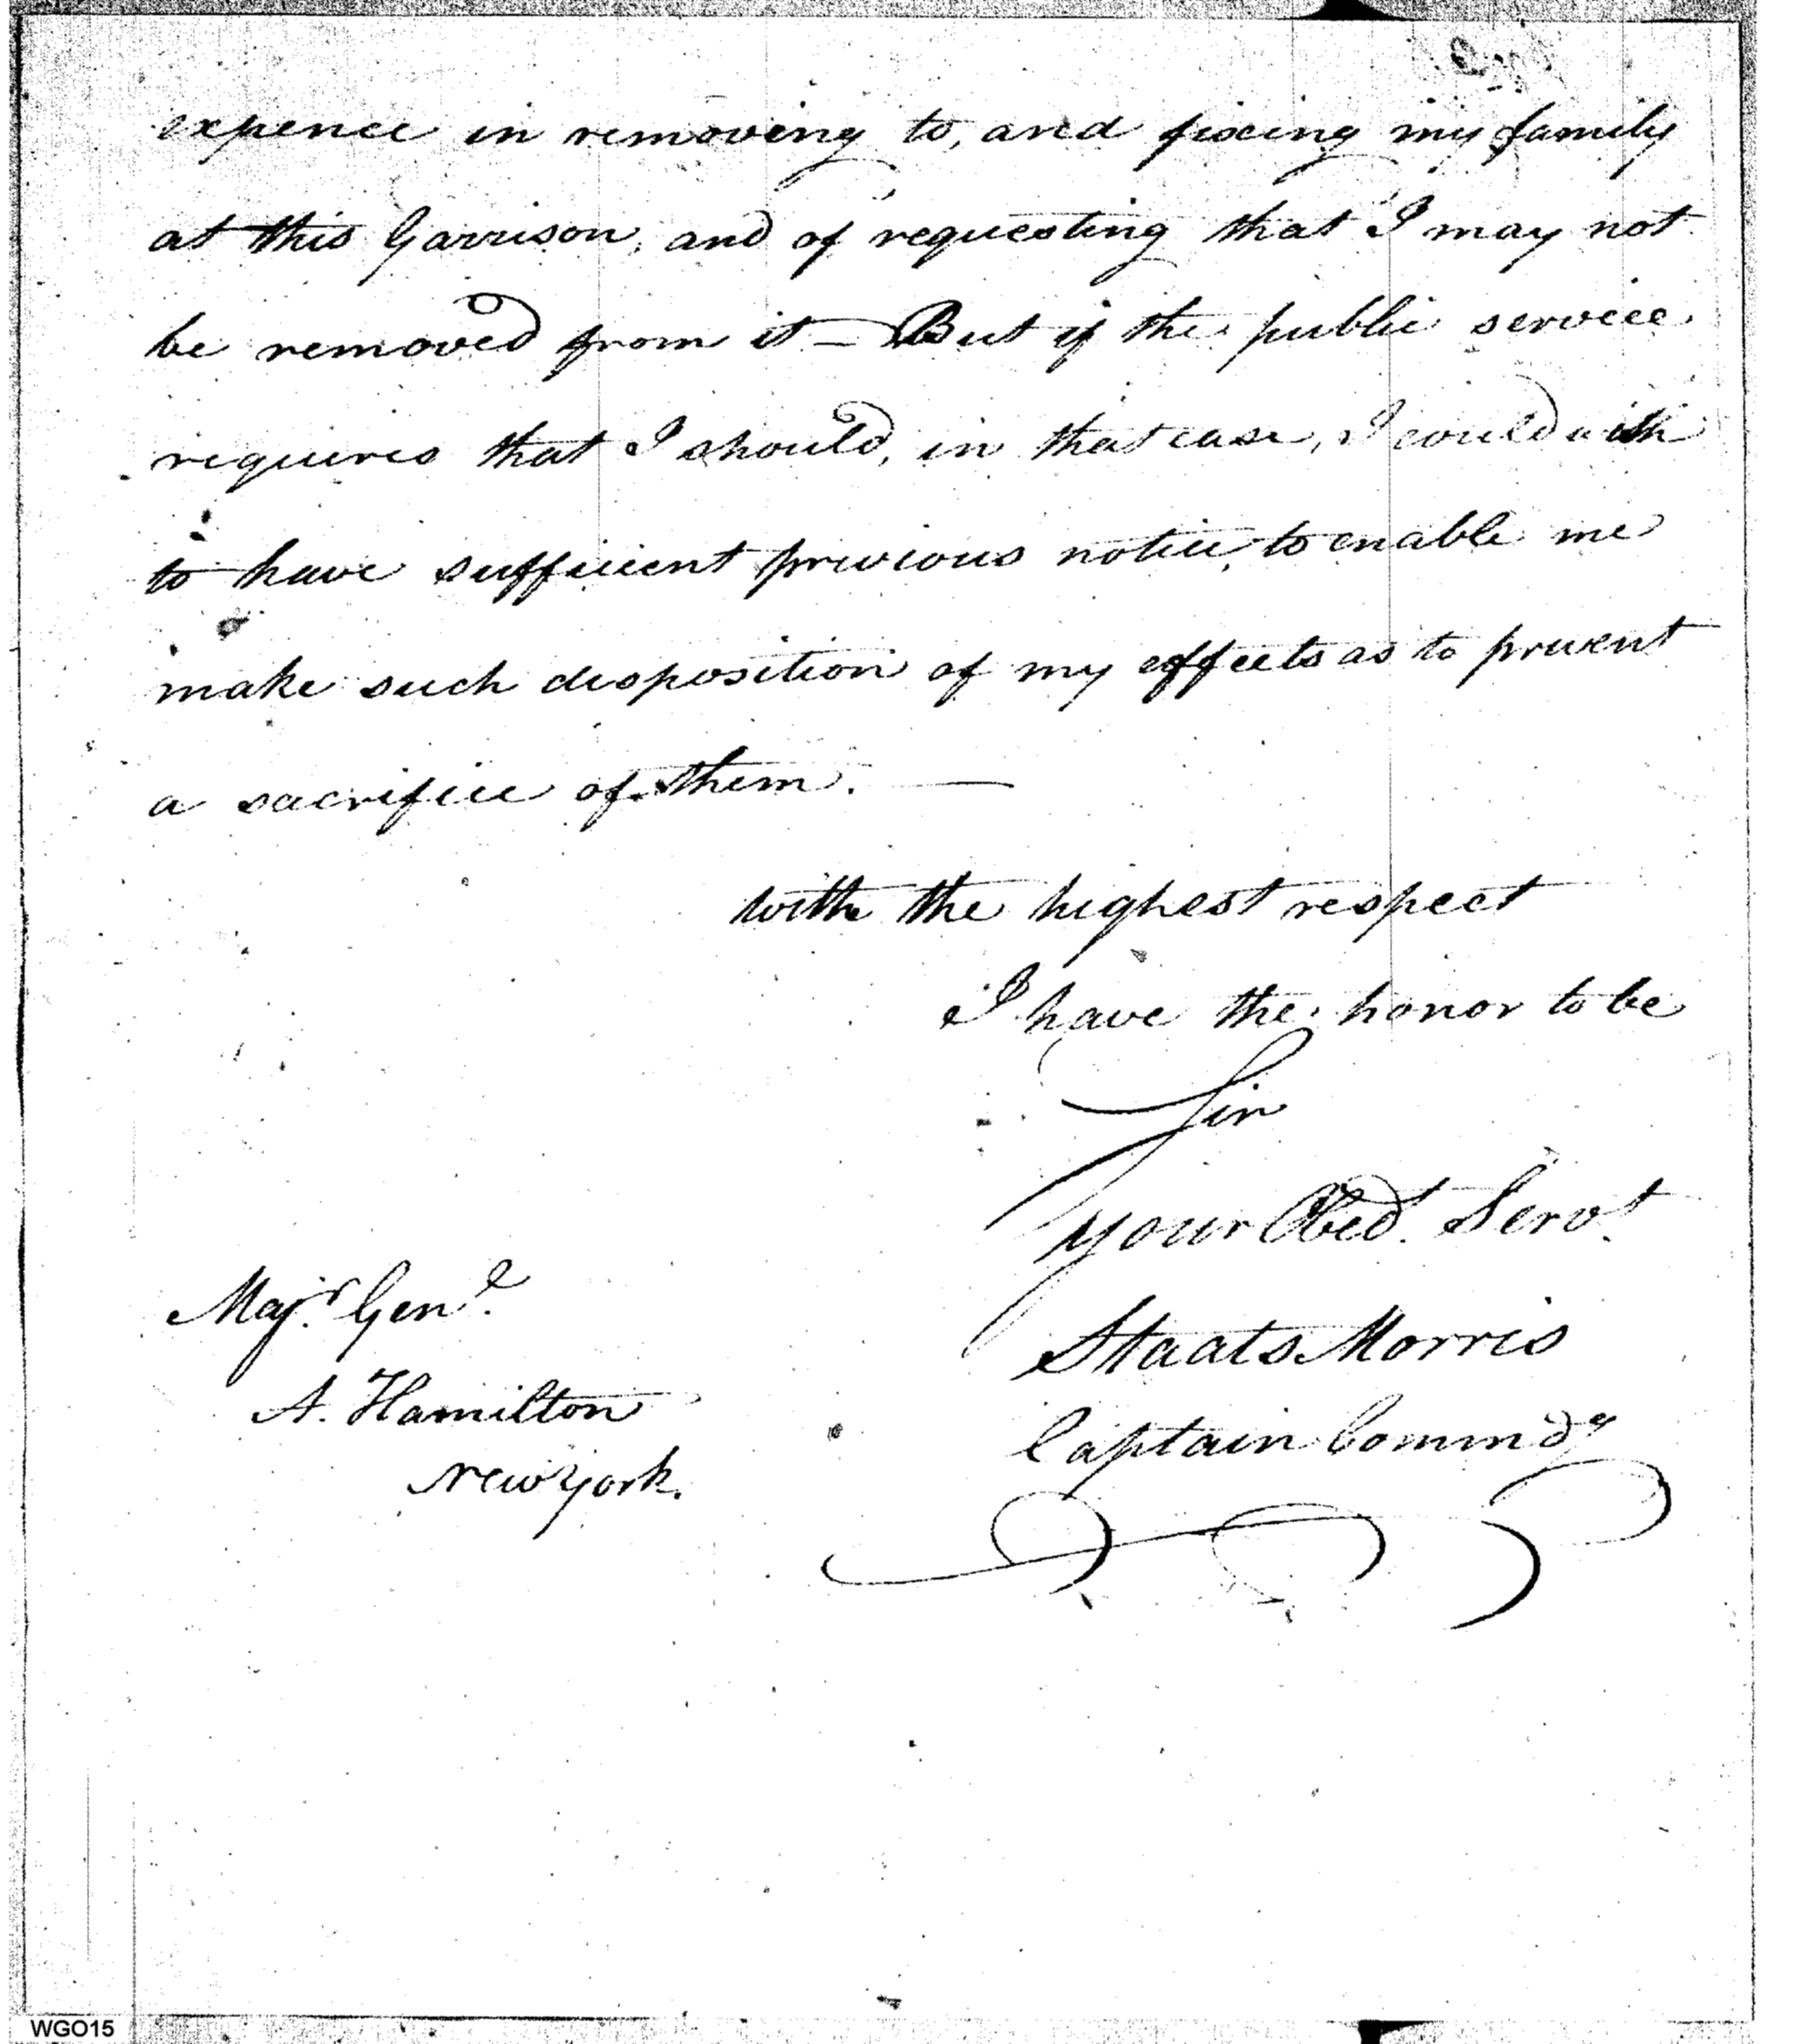 expence in removing to, and fixing my family
at this Garrison, and of requesting that I may not
be removed from it — But if the public service
requires that I should, in that case, I could wish
to have sufficient previous notice, to enable me
make such disposition of my effects as to prevent
a sacrifice of them. —
with the highest respect
I have the honor to be
Sir
your Obed.t Serv.t
Staats Morris
Captain Commdg
Maj.r Gen.l
A. Hamilton
New York.
WGO15